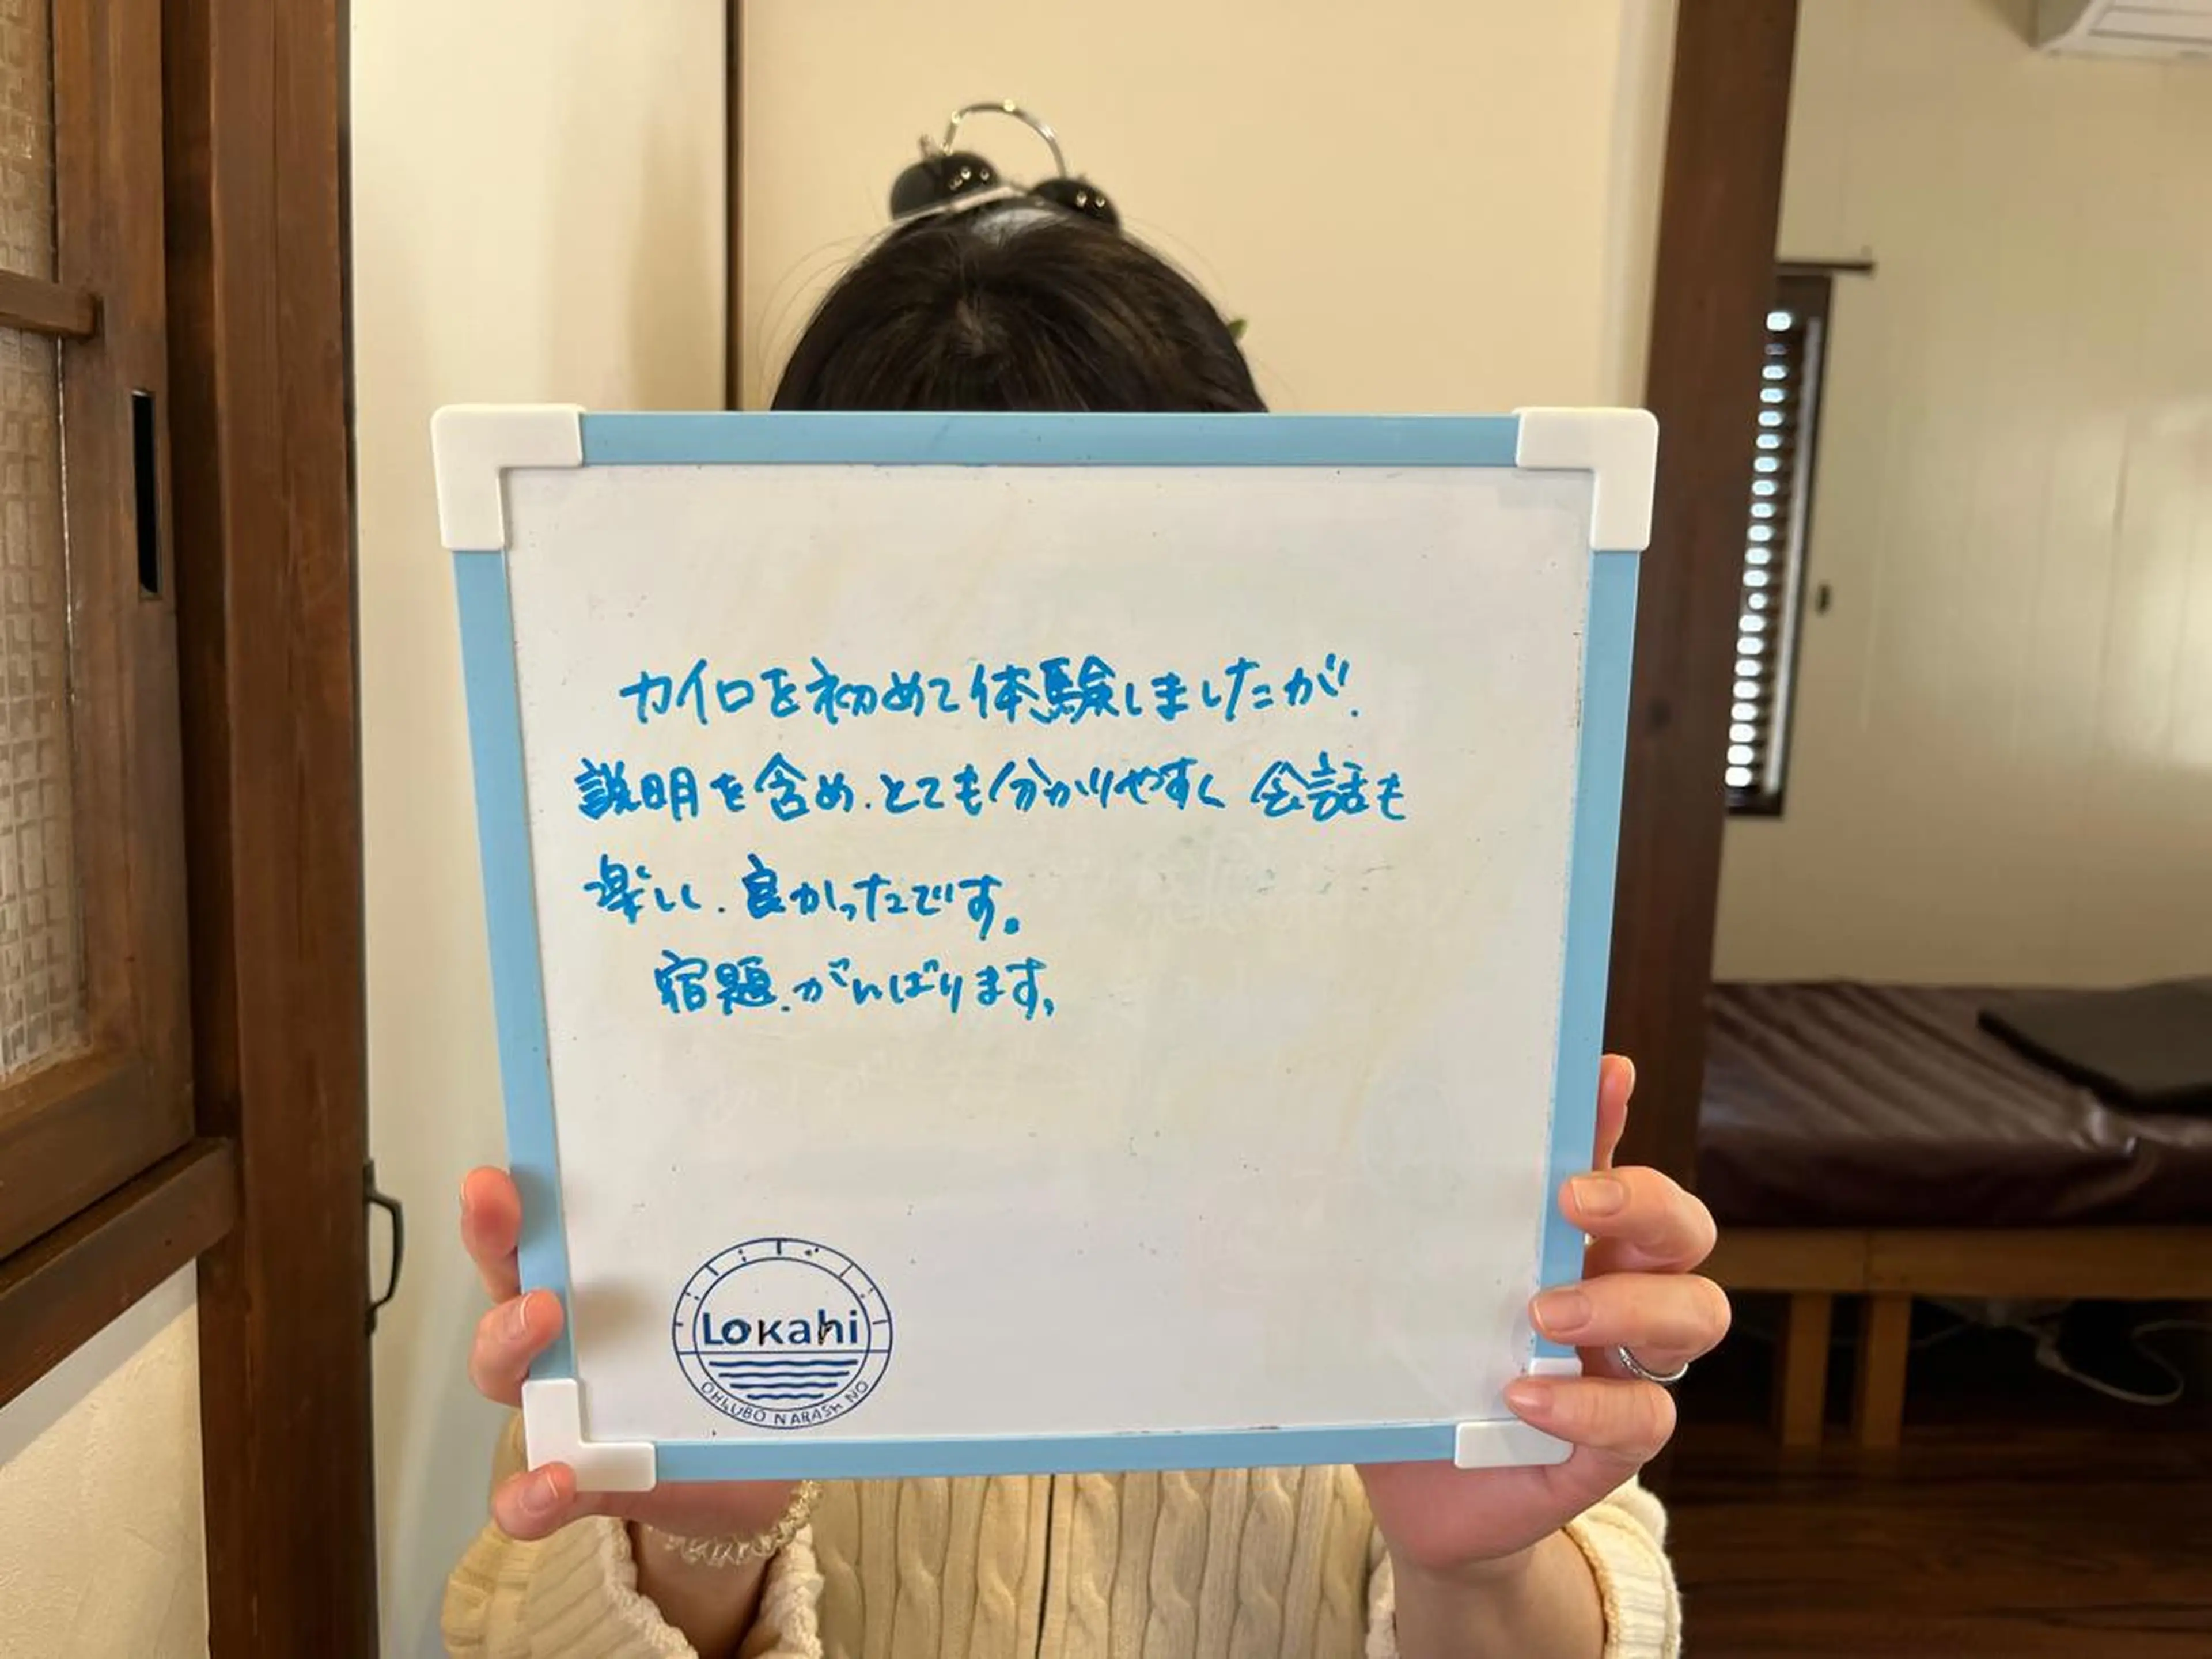 カイロを初めて体験しましたが、
説明を含め、とても分かりやすく 会話も
楽しく、良かったです。
宿題、がんばります。
Lokahi
OHKUBO NARASHINO